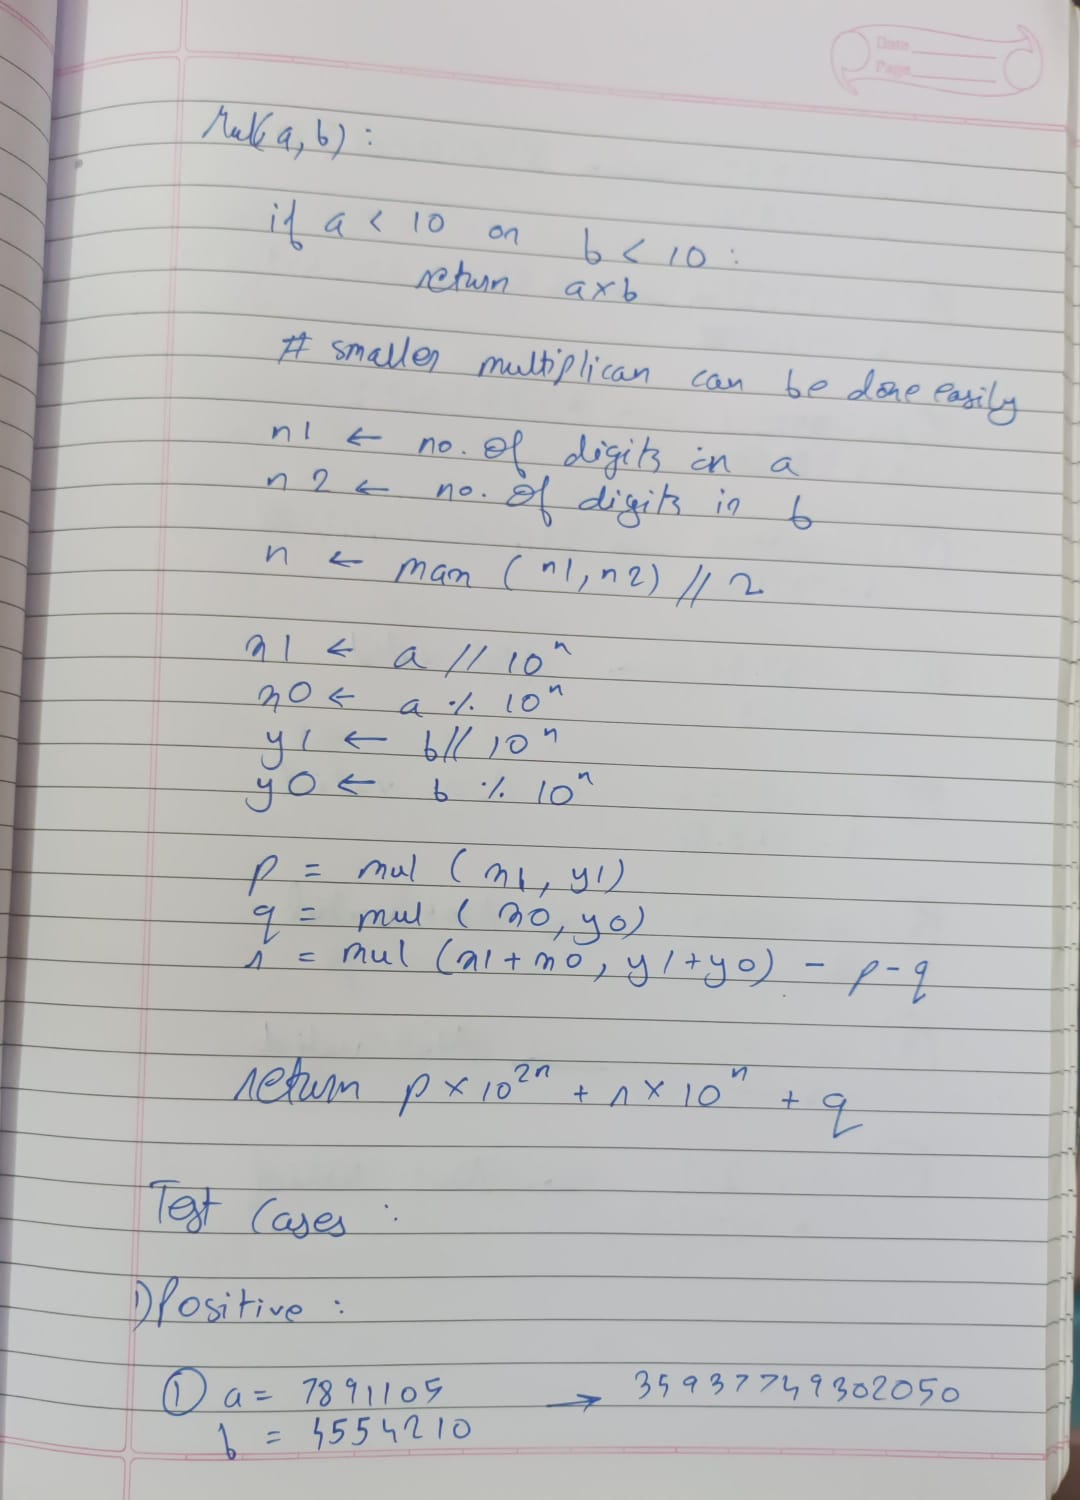 Date
Page
Mul(a, b) :
if a < 10 or b < 10 :
return a x b
# smaller multiplican can be done easily
n1 ← no. of digits in a
n2 ← no. of digits in b
n ← max (n1, n2) // 2
x1 ← a // 10^n
x0 ← a % 10^n
y1 ← b // 10^n
y0 ← b % 10^n
p = mul (x1, y1)
q = mul (x0, y0)
r = mul (x1 + x0, y1 + y0) - p - q
return p x 10^2n + r x 10^n + q
Test Cases :
1) Positive :
① a = 7891105 → 35937749302050
b = 4554210